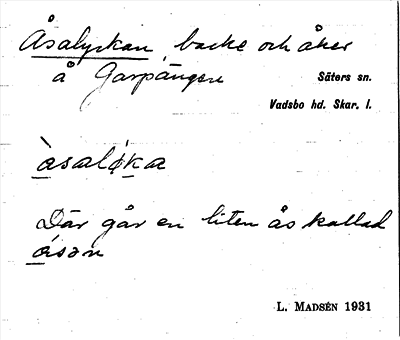 Åsalyckan, backe och åker
å Garpängen
Säters sn.
Vadsbo hd. Skar. l.
àsalø̀ka
Där går en liten ås kallad
åsən
L. MADSÉN 1931